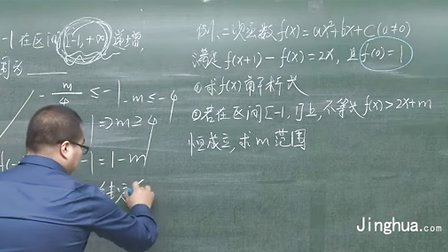 -1 在区间[-1, +∞)递增,
围为
-m/4 ≤ -1 -m ≤ -4
⇒ m ≥ 4
f(-
-1 = 1-m
例1、二次函数 f(x) = ax²+bx+c (a≠0)
满足 f(x+1) - f(x) = 2x, 且 f(0) = 1
①求f(x)解析式
②若在区间[-1, 1]上, 不等式 f(x) > 2x+m
恒成立, 求 m 范围
Jinghua.com